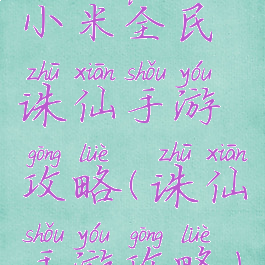 小米全民
zhū xiān shǒu yóu
诛仙手游
gòng lüè zhū xiān
攻略(诛仙
shǒu yóu gòng lüè
手游攻略)